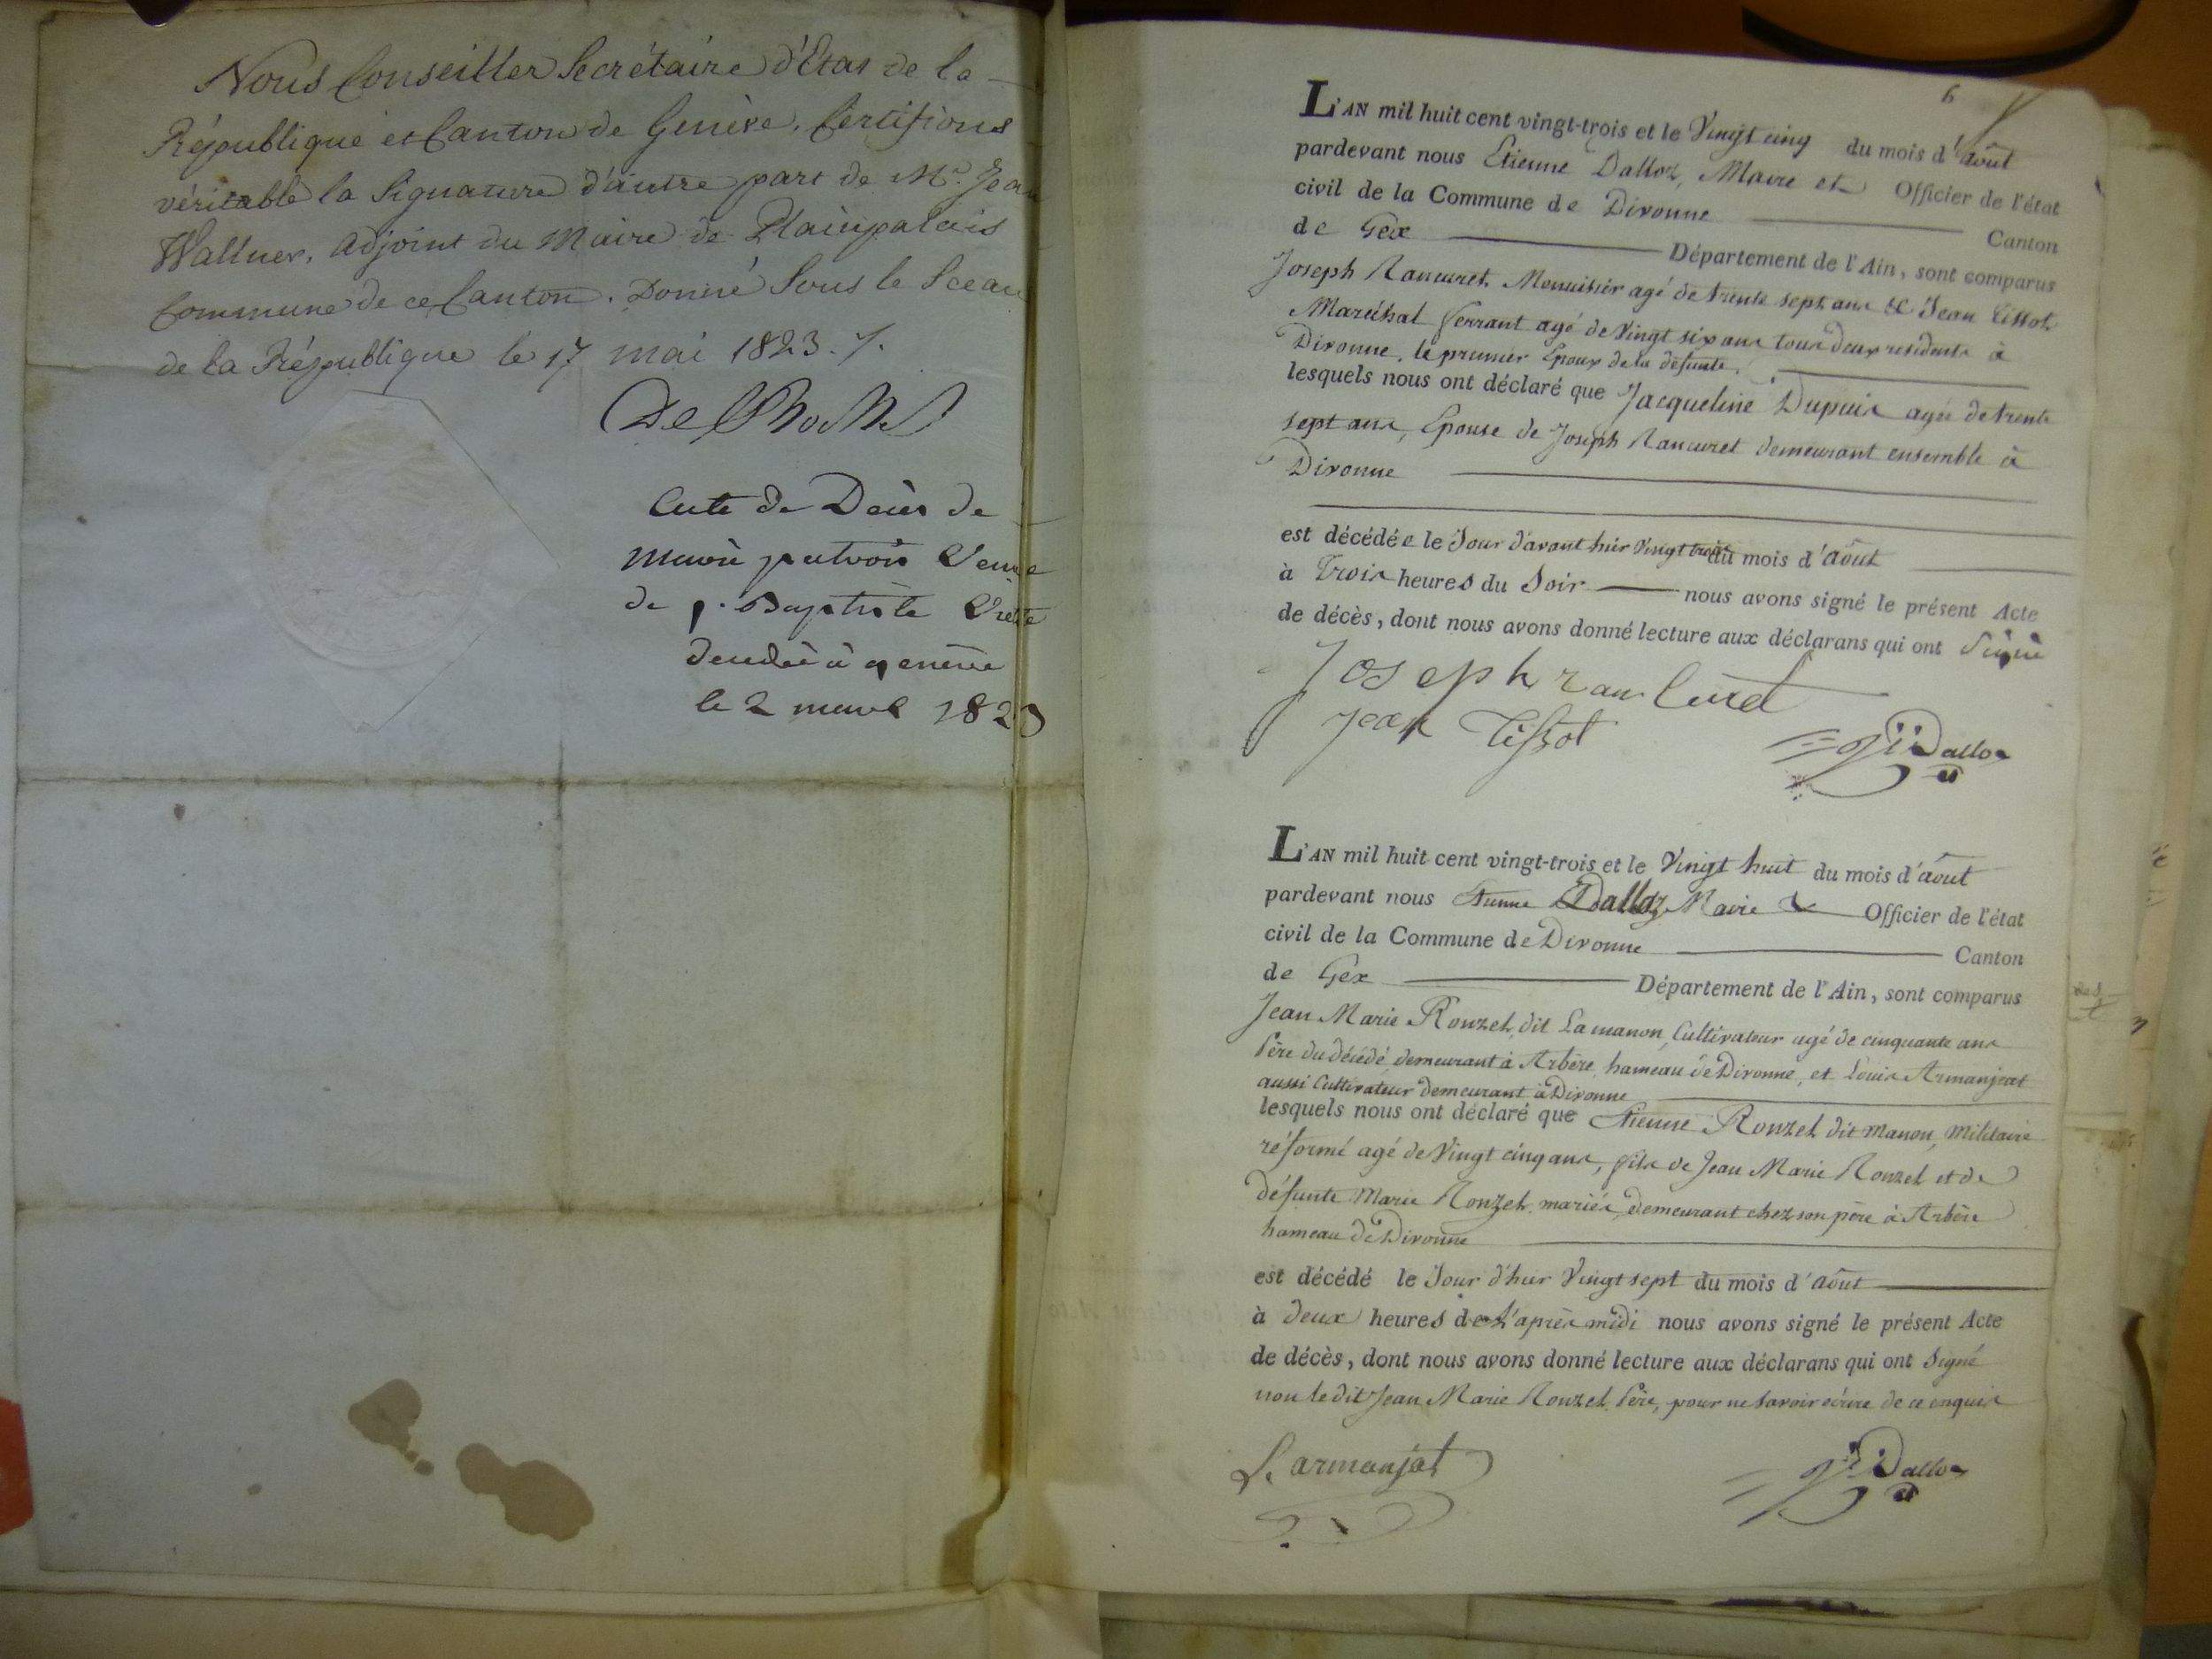 Nous Conseiller Secrétaire d'Etat de la
République et Canton de Genève, Certifions
véritable la Signature d'autre part de Mr. Jean
Wallner, adjoint du Maire de Plainpalais
Commune de ce Canton. Donné Sous le Sceau
de la République le 17 mai 1823.
acte de Décès de
marie veuve
de j. Baptiste
décédée à genève
le 2 mars 1823
6
L'AN mil huit cent vingt-trois et le Vingt cinq du mois d'août
pardevant nous Etienne Dalloz, Maire et Officier de l'état
civil de la Commune de Divonne Canton
de Gex Département de l'Ain, sont comparus
Joseph Rancuret, Menuisier agé de trente sept ans & Jean Tissot
Maréchal ferrant agé de Vingt six ans tous deux residents à
Divonne, le premier Epoux de la défunte.
lesquels nous ont déclaré que Jacqueline Dupuis agée de trente
sept ans, Epouse de Joseph Rancuret demeurant ensemble à
Divonne
est décédée le Jour d'avant hier Vingt trois du mois d'août
à Trois heures du Soir nous avons signé le présent Acte
de décès, dont nous avons donné lecture aux déclarans qui ont Signé
Joseph rancuret
jean Tissot
Dalloz
L'AN mil huit cent vingt-trois et le Vingt huit du mois d'août
pardevant nous Etienne Dalloz Maire & Officier de l'état
civil de la Commune de Divonne Canton
de Gex Département de l'Ain, sont comparus
Jean Marie Ronzel, dit Lamanon, Cultivateur agé de cinquante ans
Père du décédé demeurant à Arbère, hameau de Divonne, et Louis Armanjeat
aussi Cultivateur demeurant à Divonne
lesquels nous ont déclaré que Etienne Ronzel dit manon, militaire
réformé agé de Vingt cinq ans, fils de Jean Marie Ronzel et de
défunte Marie Ronzel, mariés, demeurant chez son père à Arbère
hameau de Divonne
est décédé le Jour d'hier Vingt sept du mois d'août
à deux heures de L'après midi nous avons signé le présent Acte
de décès, dont nous avons donné lecture aux déclarans qui ont Signé
non le dit Jean Marie Ronzel Père, pour ne savoir écrire de ce enquis
L. armanjat
Dalloz